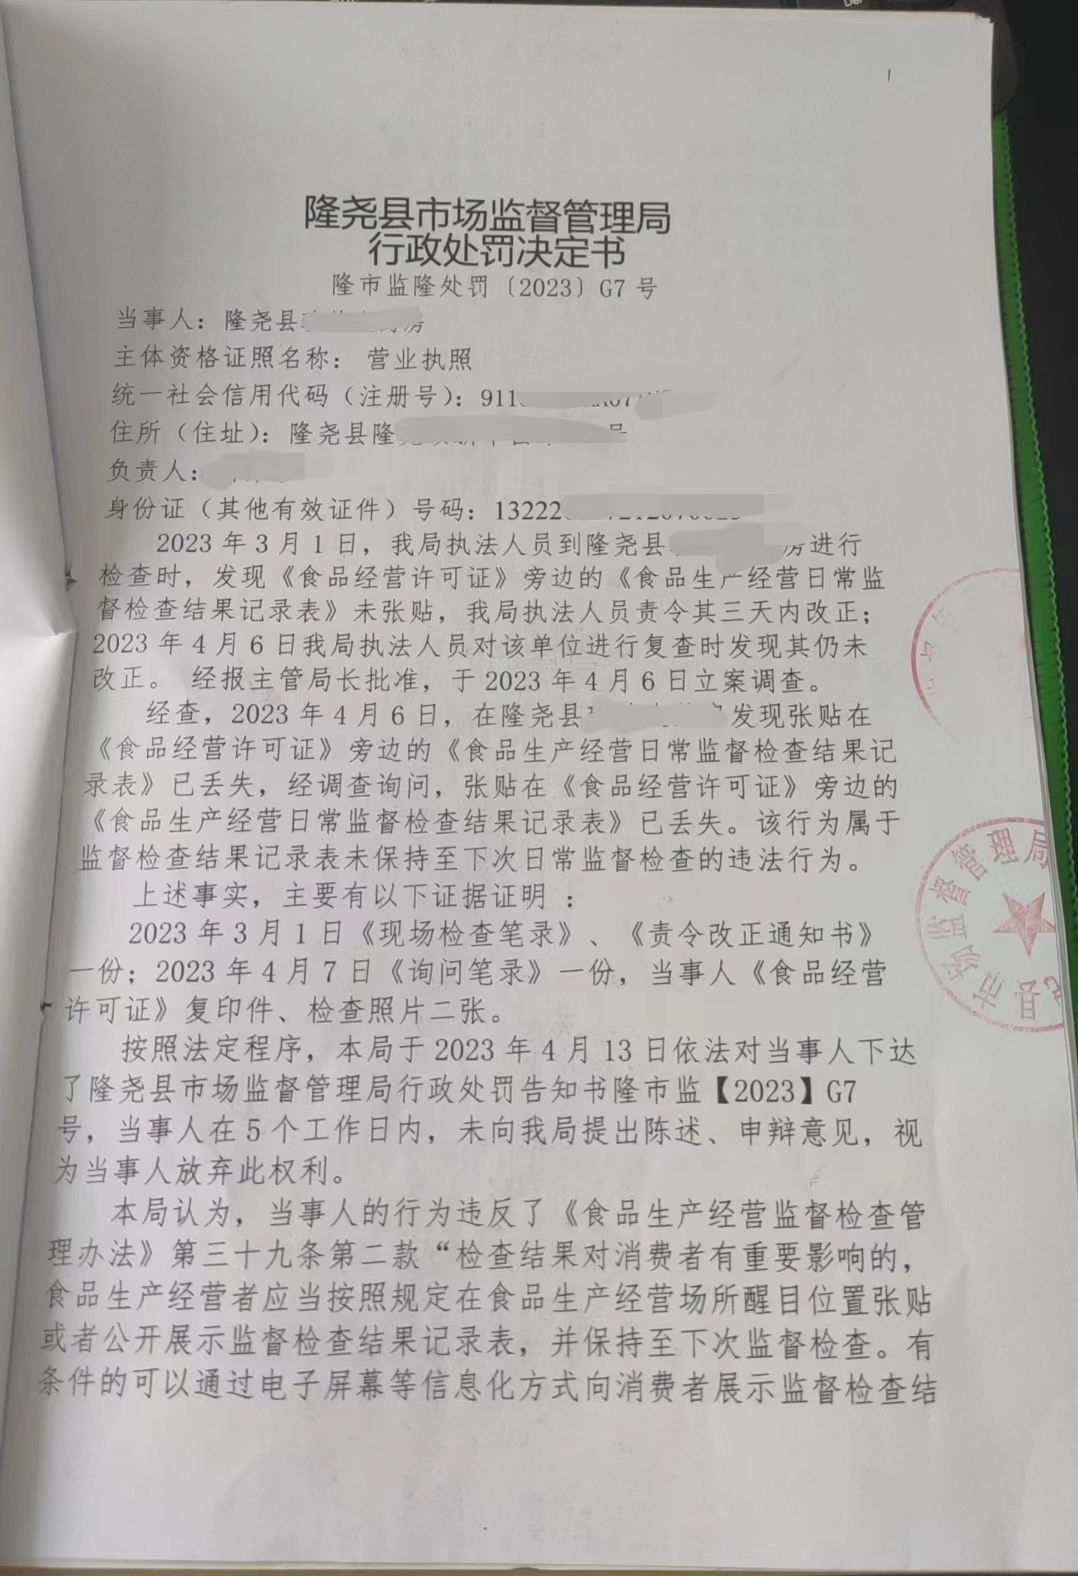 隆尧县市场监督管理局
行政处罚决定书
隆市监隆处罚〔2023〕G7 号
当事人：隆尧县
主体资格证照名称： 营业执照
统一社会信用代码（注册号）：911
住所（住址）：隆尧县隆 号
负责人：
身份证（其他有效证件）号码：13222
2023 年 3 月 1 日，我局执法人员到隆尧县 房进行
检查时，发现《食品经营许可证》旁边的《食品生产经营日常监
督检查结果记录表》未张贴，我局执法人员责令其三天内改正；
2023 年 4 月 6 日我局执法人员对该单位进行复查时发现其仍未
改正。 经报主管局长批准，于 2023 年 4 月 6 日立案调查。
经查，2023 年 4 月 6 日，在隆尧县 发现张贴在
《食品经营许可证》旁边的《食品生产经营日常监督检查结果记
录表》已丢失，经调查询问，张贴在《食品经营许可证》旁边的
《食品生产经营日常监督检查结果记录表》已丢失。该行为属于
监督检查结果记录表未保持至下次日常监督检查的违法行为。
上述事实，主要有以下证据证明 ：
2023 年 3 月 1 日《现场检查笔录》、《责令改正通知书》
一份；2023 年 4 月 7 日《询问笔录》一份，当事人《食品经营
许可证》复印件、检查照片二张。
按照法定程序，本局于 2023 年 4 月 13 日依法对当事人下达
了隆尧县市场监督管理局行政处罚告知书隆市监【2023】G7
号，当事人在 5 个工作日内，未向我局提出陈述、申辩意见，视
为当事人放弃此权利。
本局认为，当事人的行为违反了《食品生产经营监督检查管
理办法》第三十九条第二款“检查结果对消费者有重要影响的，
食品生产经营者应当按照规定在食品生产经营场所醒目位置张贴
或者公开展示监督检查结果记录表，并保持至下次监督检查。有
条件的可以通过电子屏幕等信息化方式向消费者展示监督检查结
县市场监督管理局